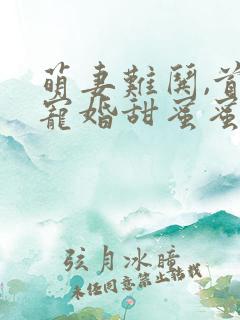 萌妻難鬥,首
寵婚甜蜜蜜
弦月冰瞳
未经同意禁止转载